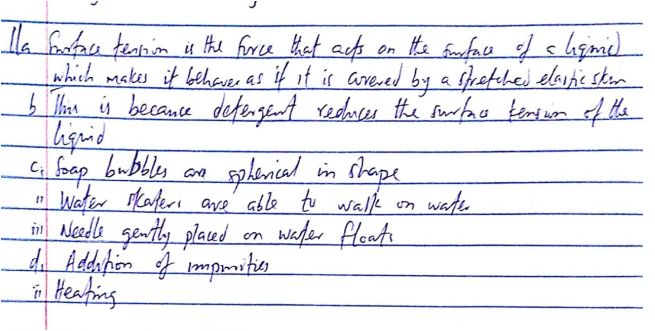 11a Surface tension is the force that acts on the surface of a liquid
which makes it behaves as if it is covered by a stretched elastic skin
b This is because detergent reduces the surface tension of the
liquid
ci Soap bubbles are spherical in shape
ii Water skaters are able to walk on water
iii Needle gently placed on water floats
di Addition of impurities
ii Heating